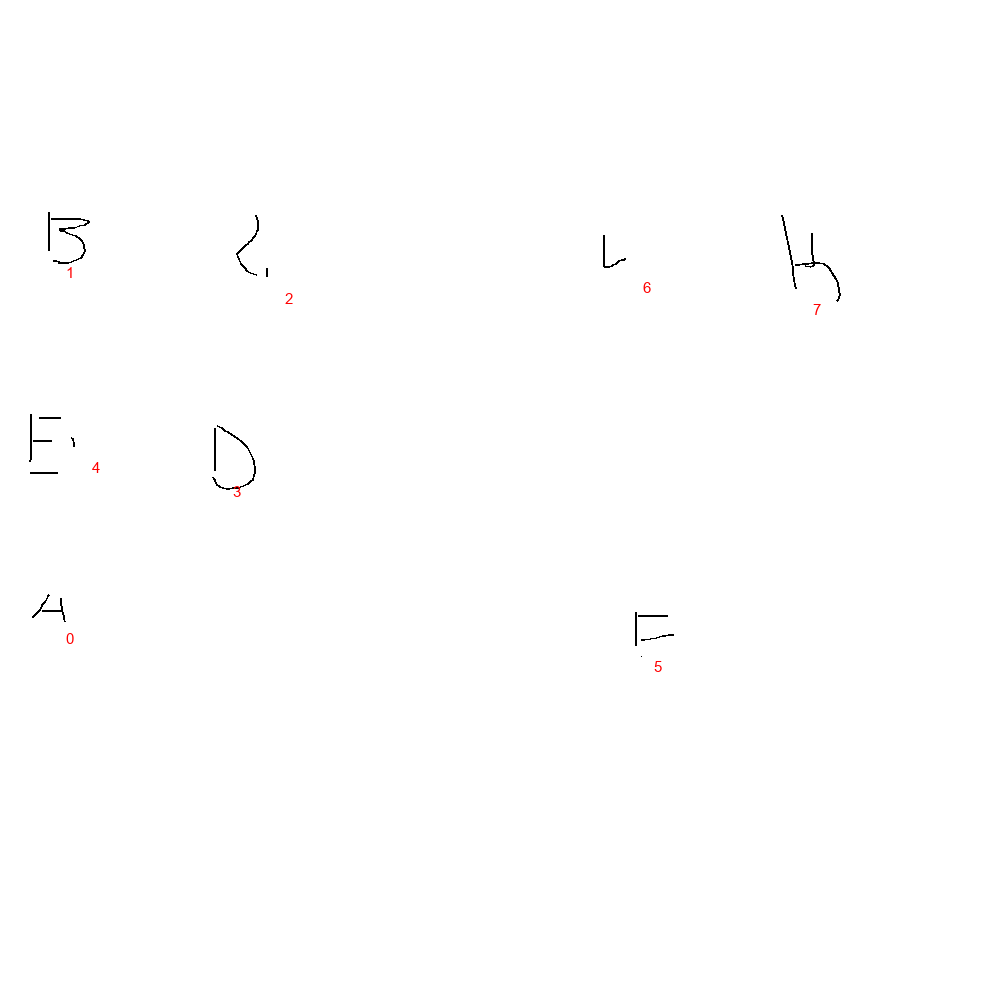 B
1
2
L
6
H
7
E
4
D
3
A
0
F
5